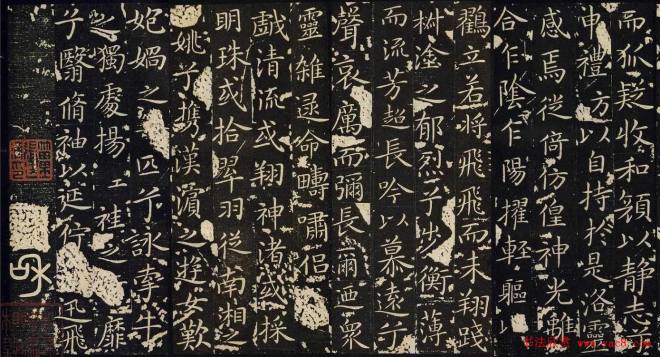 而狐疑收和顏以静志兮
申禮防以自持於是洛靈
感焉徙倚仿偟神光離
合乍陰乍陽擢輕軀以
鸛立若將飛飛而未翔踐
椒塗之郁烈兮步衡薄
而流芳超長吟以慕遠兮
聲哀厲而彌長爾迺衆
靈雑遝命疇嘯侶
戲清流或翔神渚或採
明珠或拾翠羽從南湘之
姚兮攜漢濱之遊女歎
媧之匹兮詠牽牛
之獨處揚袿之靡
兮翳脩袖以延佇迅飛
书法欣赏 www.yac8.com